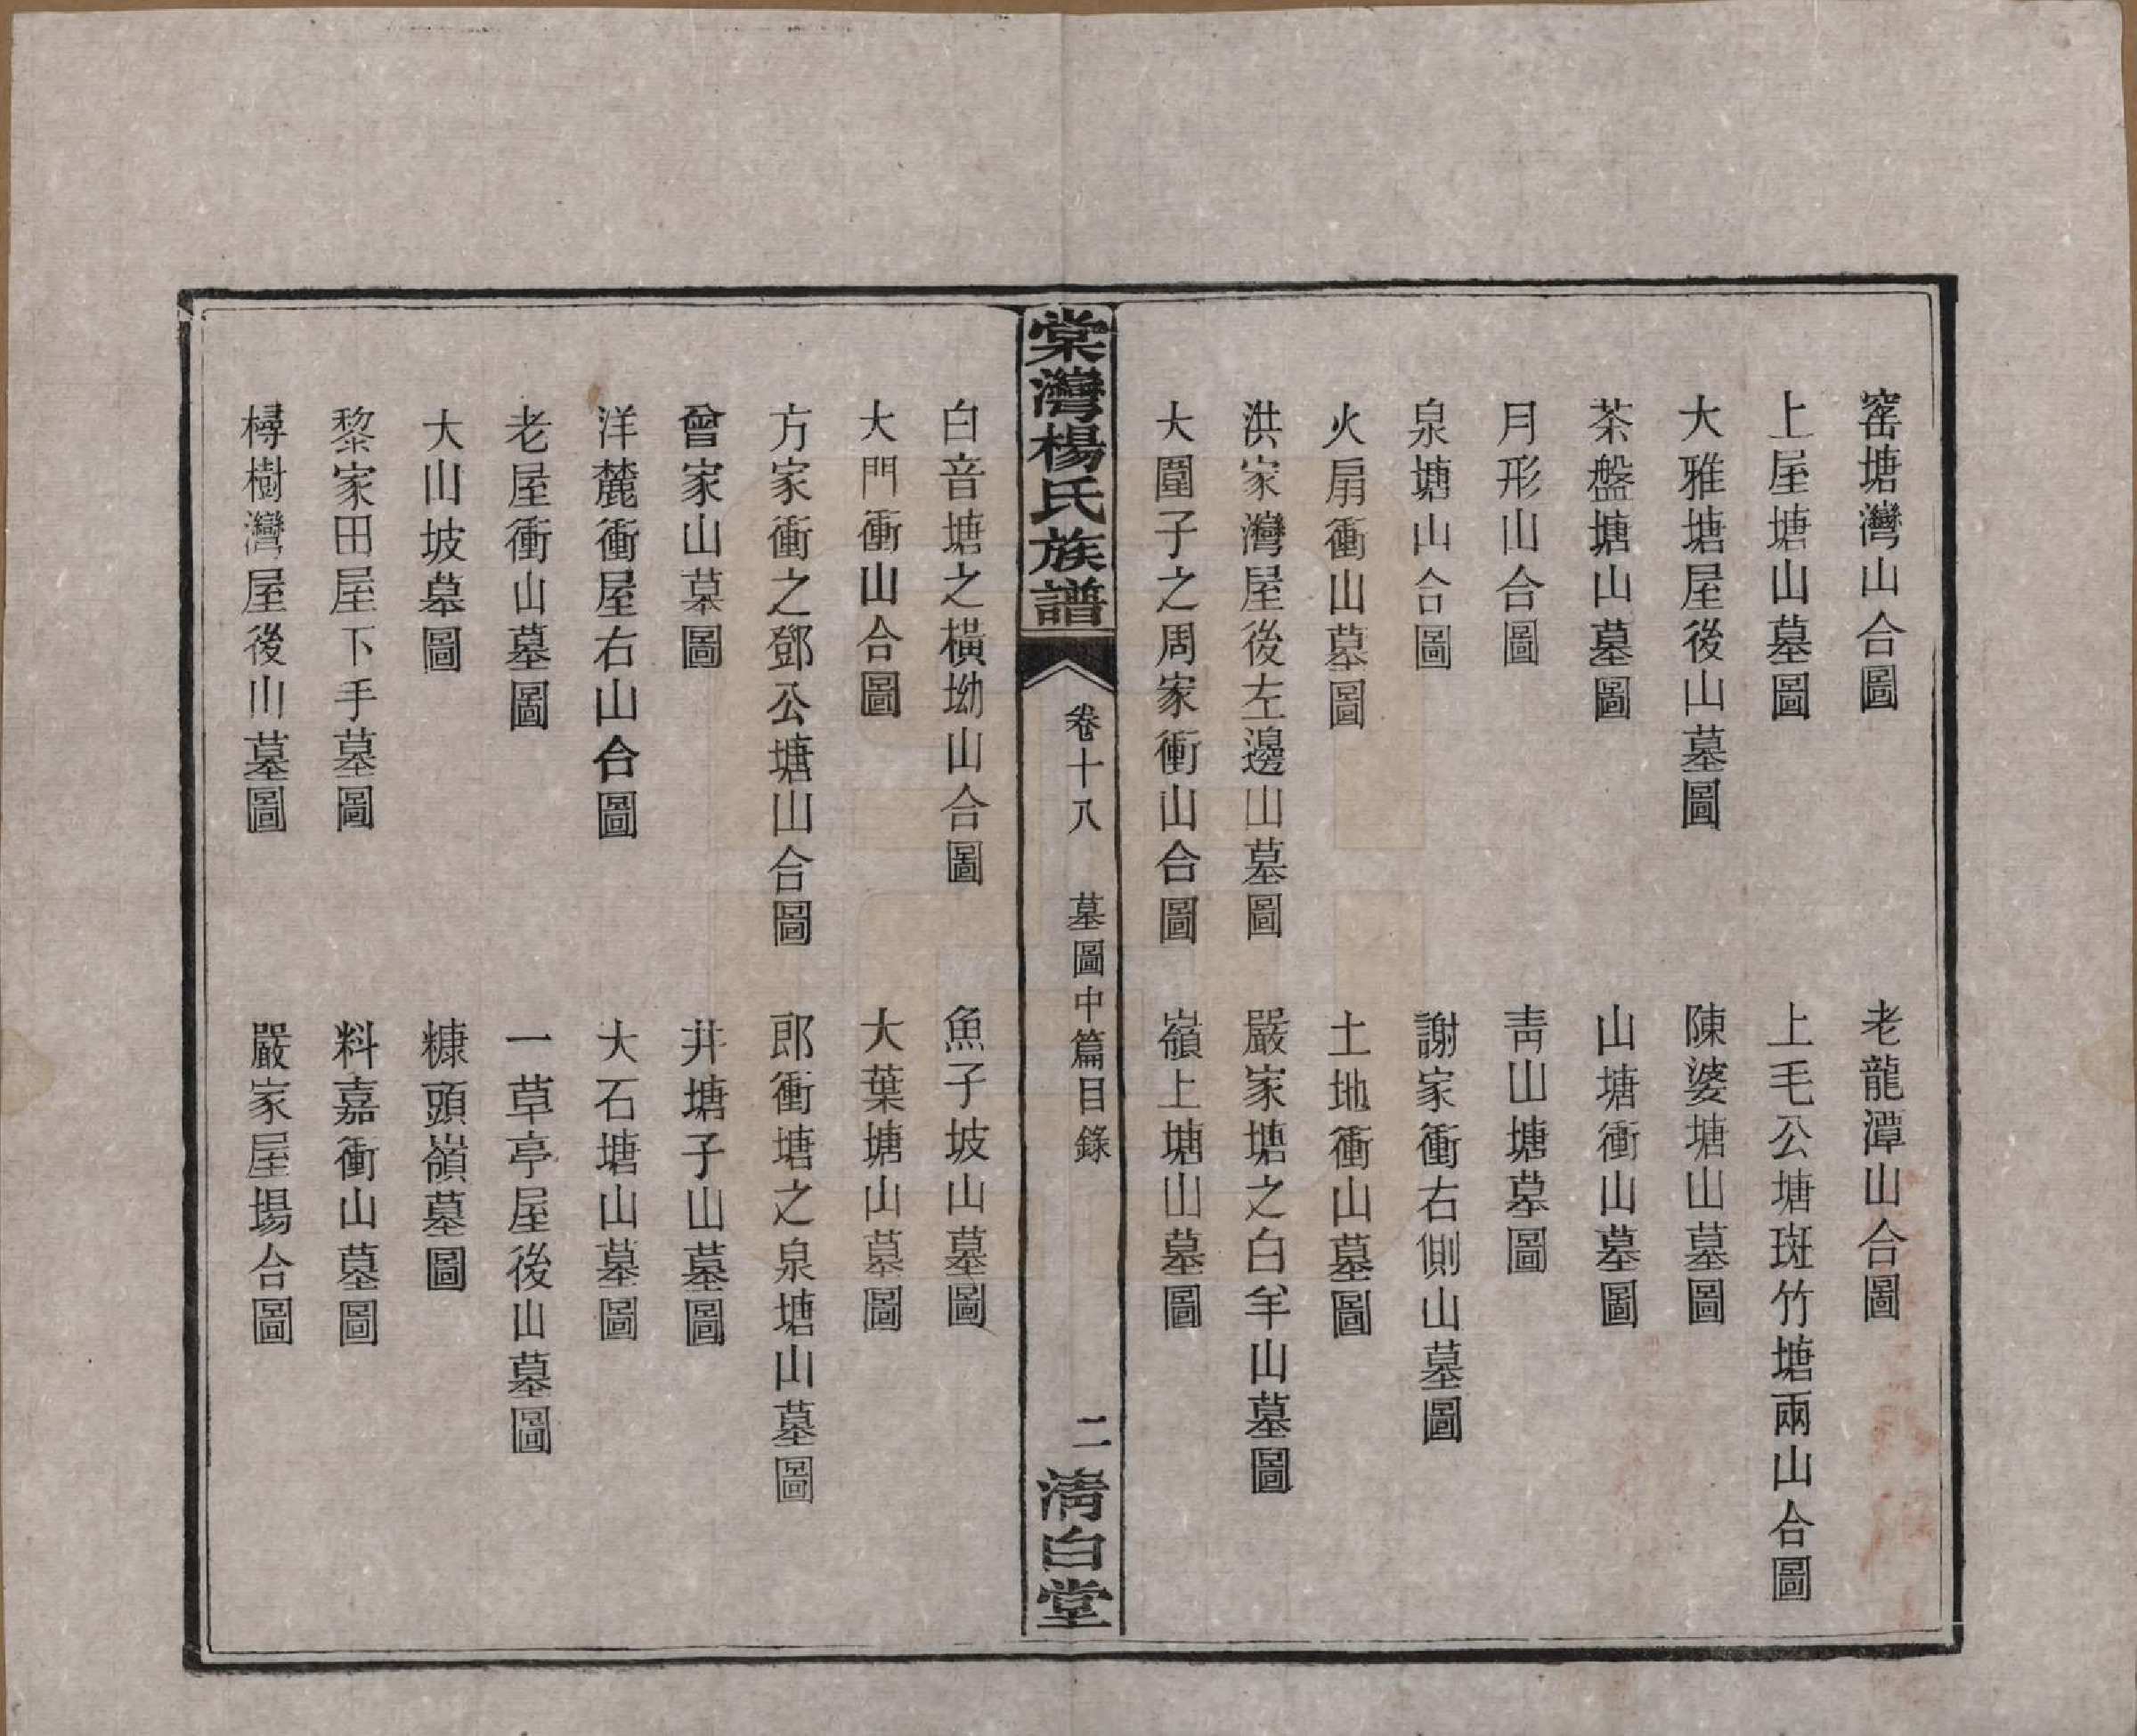 窰塘灣山合圖
老龍潭山合圖
上屋塘山墓圖
上毛公塘斑竹塘兩山合圖
大雅塘屋後山墓圖
陳婆塘山墓圖
茶盤塘山墓圖
山塘衝山墓圖
月形山合圖
靑山塘墓圖
泉塘山合圖
謝家衝右側山墓圖
火扇衝山墓圖
土地衝山墓圖
洪家灣屋後左邊山墓圖
嚴家塘之白羊山墓圖
大圍子之周家衝山合圖
嶺上塘山墓圖
棠灣楊氏族譜
卷十八
墓圖中篇目錄
二
淸白堂
白音塘之橫坳山合圖
魚子坡山墓圖
大門衝山合圖
大葉塘山墓圖
方家衝之鄧公塘山合圖
郎衝塘之泉塘山墓圖
曾家山墓圖
井塘子山墓圖
洋麓衝屋右山合圖
大石塘山墓圖
老屋衝山墓圖
一草亭屋後山墓圖
大山坡墓圖
糠頭嶺墓圖
黎家田屋下手墓圖
料嘉衝山墓圖
樳樹灣屋後山墓圖
嚴家屋場合圖